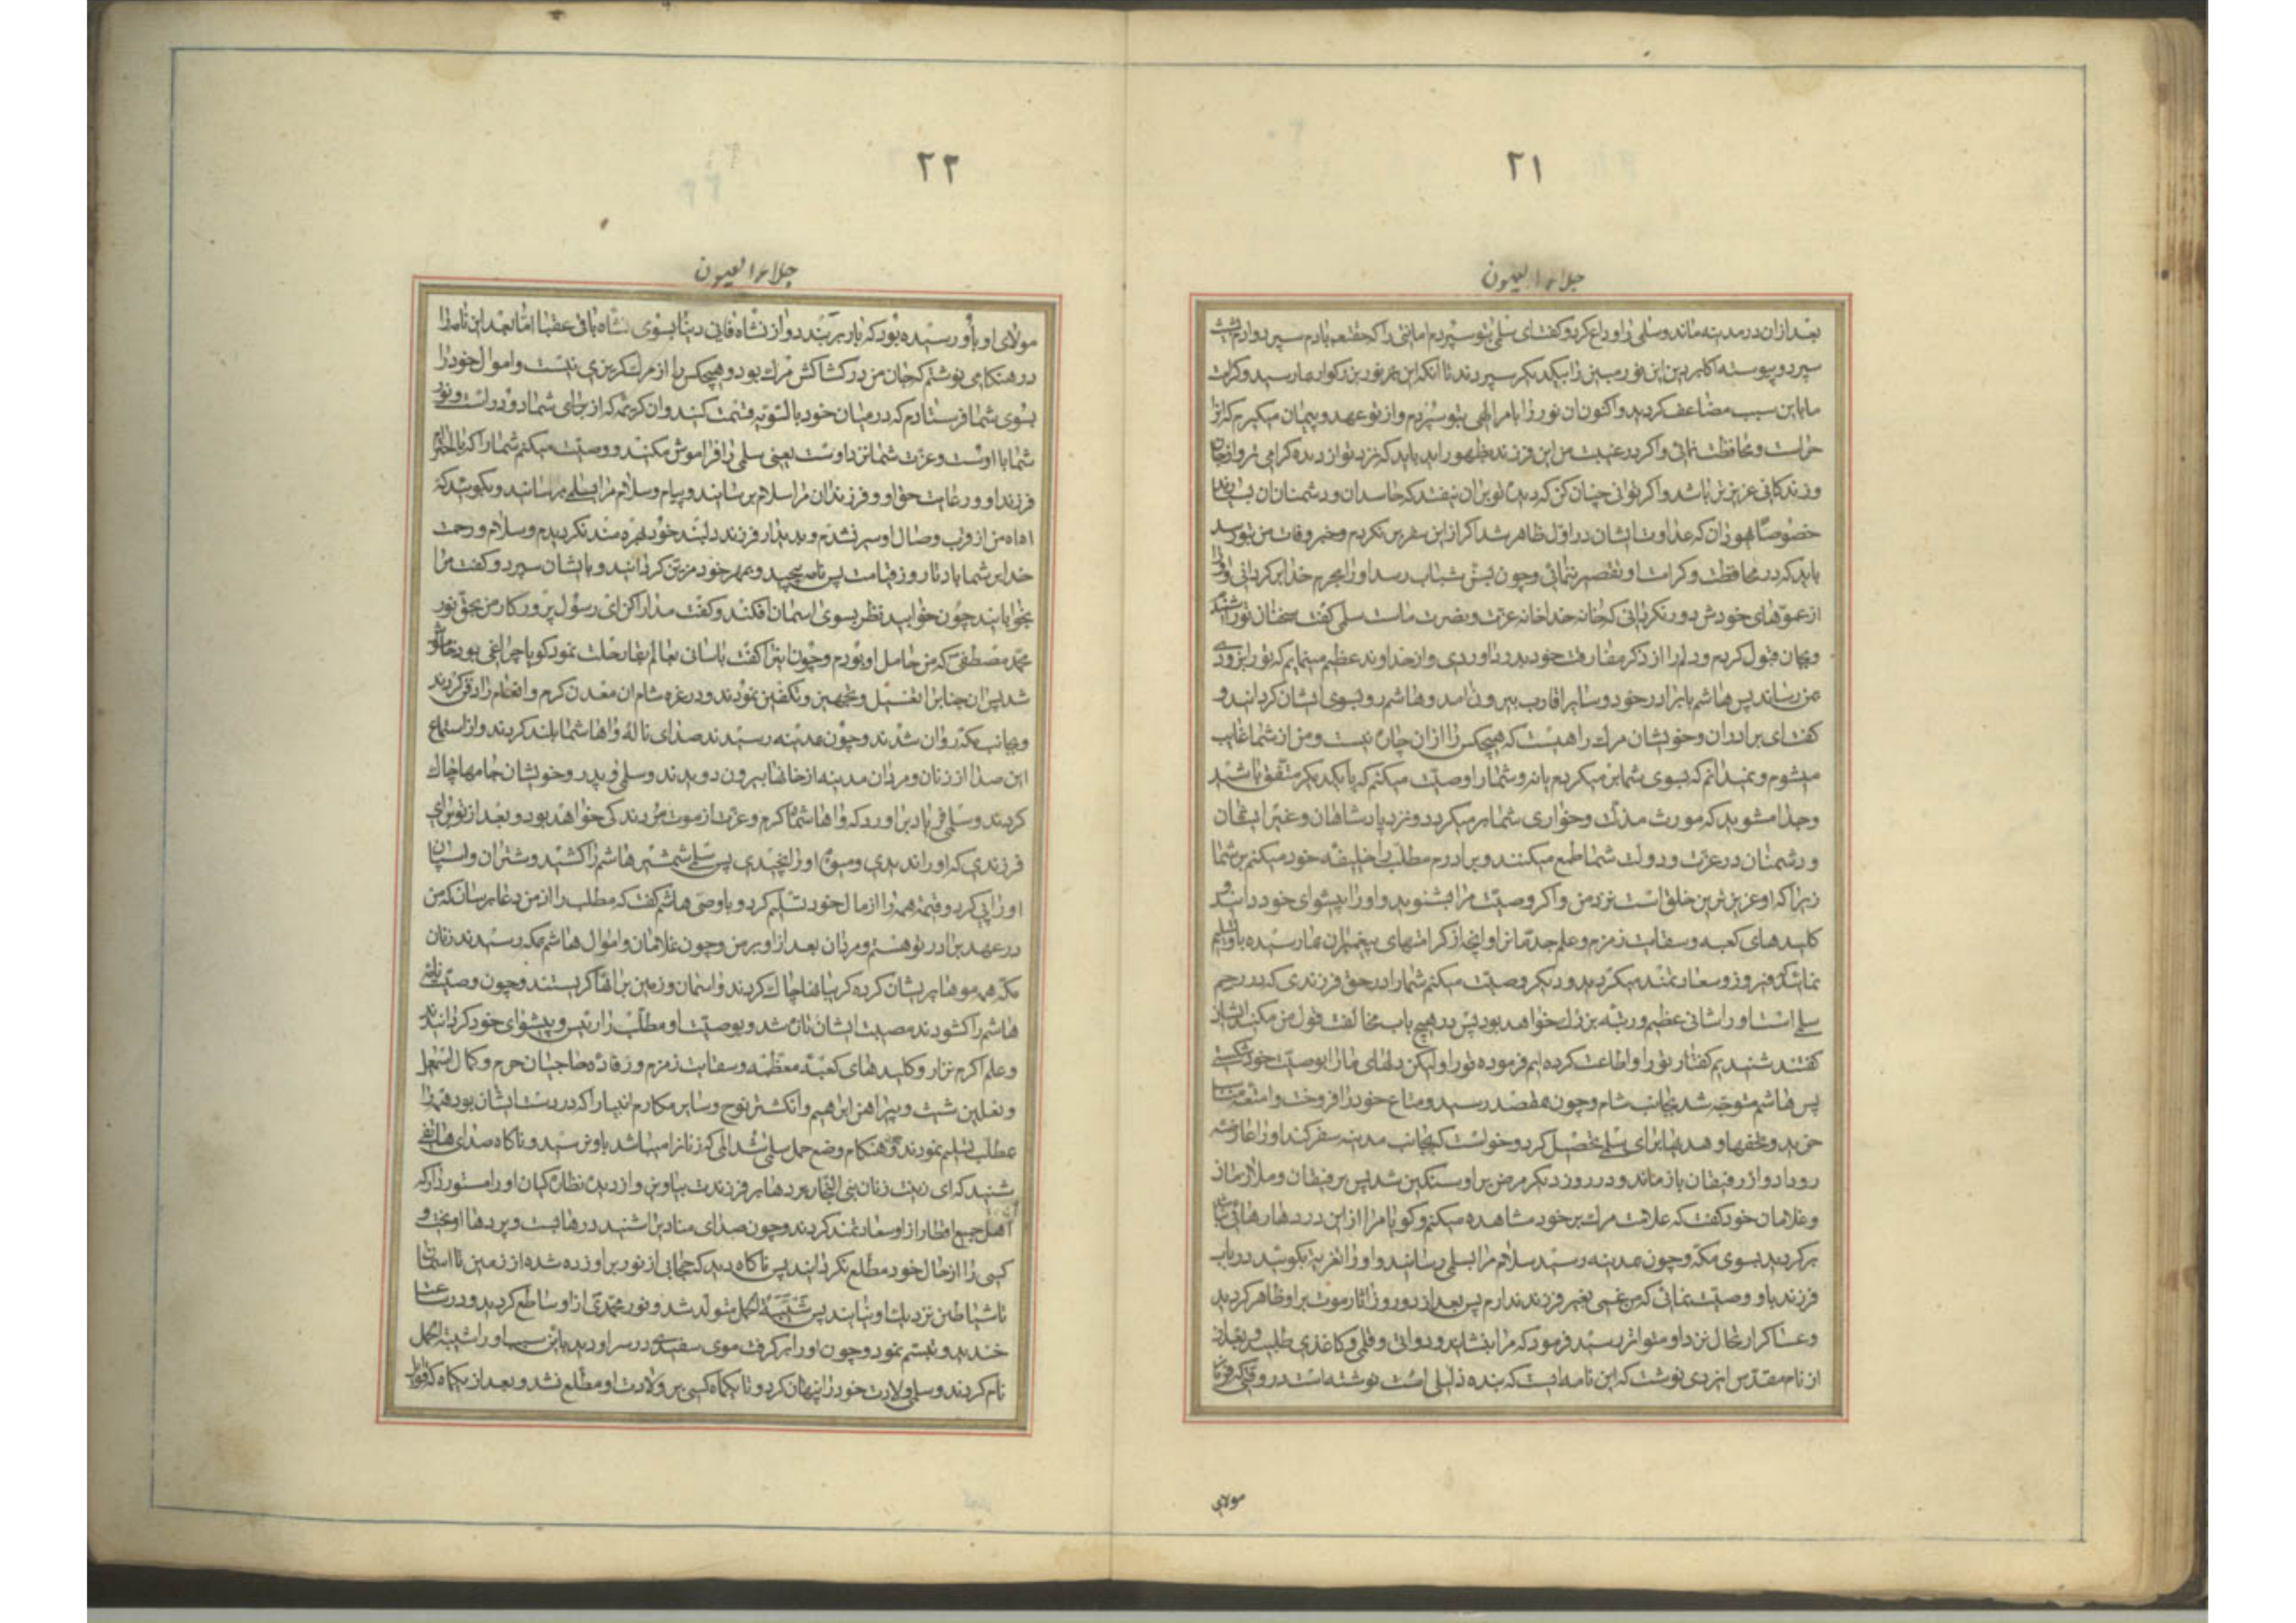 ٢١
جلاء العیون
بعد ازان در مدینه ماند و سلمی را وداع کرد و کفت ای سلمی بتو سپردم امانتی را که حقتعم بادم سپرد و ادم بشیث
سپرد و پیوسته اکابر دین این نور مبین را بیکدیکر سپردند تا انکه این نور بزرکوار بما رسید و کرامت
ما باین سبب مضاعف کردید و اکنون ان نور را بامر الهی بتو سپردم و از تو عهد و پیمان میکیرم که انرا
حراست و محافظت نمائی و اکر در غیبت من این فرزند بظهور اید باید که نزد تو از دیده کرامی تر و از جان
و زندکانی عزیزتر باشد و اکر توانی چنان کن که دیده بران نیفتد که حاسدان و دشمنان ان بسیارند
خصوصا یهودان که عداوت ایشان در اول ظاهر شد اکر از این سفر بر نکردم و خبر وفات من بتو رسد
باید که در محافظت و کرامت او تقصیر ننمائی و چون بسن شباب رسد او را بحرم خدا بر کردانی و او را
از عموهای خودش دور نکردانی که خانه خدا خانه عزت و نصرت ماست سلمی کفت سخنان تو را شنیدم
و بجان قبول کردم و دلم را از ذکر مفارقت خود بدرد اوردی و از خداوند عظیم مینمایم که تو را بزودی
بمن رساند پس هاشم با برادر خود و سایر اقارب بیرون امد و هاشم رو بسوی ایشان کردانید و
کفت ای برادران و خویشان مرك راهیست که هیچکس را از ان چاره نیست و من از شما غایب
میشوم و نمیدانم که بسوی شما بر میکردم یا نه و شما را وصیت میکنم که با یکدیکر متفق باشید
و جدا مشوید که مورث مذلت و خواری شما میکردد و نزد پادشاهان و غیر ایشان
و دشمنان در عزت و دولت شما طمع میکنند و برادرم مطلب را خلیفه خود میکنم بر شما
زیرا که او عزیزترین خلق است نزد من و اکر وصیت مرا بشنوید و او را پیشوای خود دانید و
کلیدهای کعبه و سقایت زمزم و علم جد ما نزار و انچه از کرامتهای پیغمبران بما رسیده باو تسلیم
نمائید فیروز و سعادتمند میکردید و دیکر وصیت میکنم شما را در حق فرزندی که در رحم
سلمی است او را شانی عظیم و رتبه بزرك خواهد بود پس در هیچ باب مخالفت قول من مکنید ایشان
کفتند شنیدیم کفتار تو را و اطاعت کرده ایم فرموده تو را ولیکن دلهای ما را بوصیت خود شکستی
پس هاشم متوجه شد بجانب شام و چون بمقصد رسید و متاع خود را فروخت و امتعه مناسب
خرید و تحفها و هدیها برای سلمی تحصیل کرد و خواست که بجانب مدینه سفر کند او را عارضه
رو داد و از رفیقان باز ماند و در روز دیکر مرض بر او سنکین شد پس برفیقان و ملازمان
و غلامان خود کفت که علامت مرك بر خود مشاهده میکنم و کویا مرا از این درد رهائی نباشد
بر کردید بسوی مکه و چون بمدینه رسید سلام مرا بسلمی رسانید و او را تعزیه بکوئید در باب
فرزند باو وصیت نمائی که من غمی بغیر فرزند ندارم پس بعد از دو روز اثار موت بر او ظاهر کردید
و عساکر ارتحال نزد او متواتر رسید فرمود که مرا بنشانید و دواتی و قلمی و کاغذی طلبید و بعد از
از نام مقدس ایزدی نوشت که این نامه ایست که بنده ذلیلی است نوشته است در وقتی که فرمان
مولای
٢٢
جلاء العیون
مولای او باو رسیده بود که بار بر بندد و از نشاه فانی دنیا بسوی نشاه باقی عقبا اما بعد این نامه را
در هنکامی نوشتم که جان من در کشاکش مرك بود و هیچکس را از مرك کریزی نیست و اموال خود را
بسوی شما فرستادم که در میان خود بالسویه قسمت کنید و ان کریمه که از جای شما دور است و نور
شما با اوست و عزت شما نزد اوست یعنی سلمی را فراموش مکنید و وصیت میکنم شما را که باحترام
فرزند او و رعایت حق او و فرزندان مرا سلام برسانید و پیام و سلام مرا بسلمی برسانید و بکوئید که
اه اه من از قرب و وصال او سیر نشدم و بدیدار فرزند دلبند خود بهره مند نکردیدم و سلام و رحمت
خدا بر شما باد تا روز قیامت پس نامه پیچید و بمهر خود مزین کردانید و بایشان سپرد و کفت مرا
بخوابانید چون خوابید نظر بسوی اسمان افکند و کفت مدارا کن ای رسول پروردکار من بحق نور
محمد مصطفی که من حامل او بودم و چون اینرا کفت باسانی بعالم بقا رحلت نمود کویا چراغی بود خاموش
شد پس ان جناب را تغسیل و تجهیز و تکفین نمودند و در غزه شام ان معدن کرم و انعام را دفن کردند
و بجانب مکه روان شدند و چون بمدینه رسیدند صدای ناله وا هاشما بلند کردند و از استماع
این صدا از زنان و مردان مدینه از خانها بیرون دویدند و سلمی و پدر و خویشان جامها چاك
کردند و سلمی فریاد براورد که وا هاشماه کرم و عزت از موت مردند کی خواهد بود بعد از تو برای
فرزندی که او را ندیدی و میوه او را نچیدی پس سلمی شمشیر هاشم را کشید و شتران و اسپان
او را پی کرد و قیمت همه را از مال خود تسلیم کرد و با وصی هاشم کفت که مطلب را از من دعا برسان که من
در عهد برادر تو هستم و مردان بعد از او بر من و چون غلامان و اموال هاشم بمکه رسیدند زنان
مکه همه موها پریشان کرده کریبانها چاك کردند و اسمان و زمین بر انها کریستند و چون وصیت نامه
هاشم را کشودند مصیبت ایشان تازه شد و بوصیت او مطلب را رئیس و پیشوای خود کردانیدند
و علم اکرم نزار و کلیدهای کعبه معظمه و سقایت زمزم و رفاده حاجیان حرم و کمان اسمعیل
و نعلین شیث و پیراهن ابراهیم و انکشتر نوح و سایر مکارم انبیا را که در دست ایشان بود همه را
بمطلب تسلیم نمودند و هنکام وضع حمل سلمی شد المی که زنانرا میباشد باو نرسید و ناکاه صدای هاتفی
شنید که ای زینت زنان بنی النجار پردها بر فرزندت بیاویز و از دیده نظاره کیان او را مستور دار که
اهل جمیع اقطار از او سعادتمند کردند و چون صدای منادیرا شنید درها بست و پردها اویخت و
کسی را از حال خود مطلع نکردانید پس ناکاه دید که حجابی از نور بر او زده شده از زمین تا اسمان
تا شیاطین نزدیك او نیایند پس شیبة الحمد متولد شد و نور محمدی از او ساطع کردید و در ساعت
خندید و تبسم نمود و چون او را بر کرفت موی سفیدی در سر او دید باین سبب او را شیبة الحمد
نام کردند و سلمی ولادت خود را پنهان کرد و تا یکماه کسی بر ولادت او مطلع نشد و بعد از یکماه که قوابل